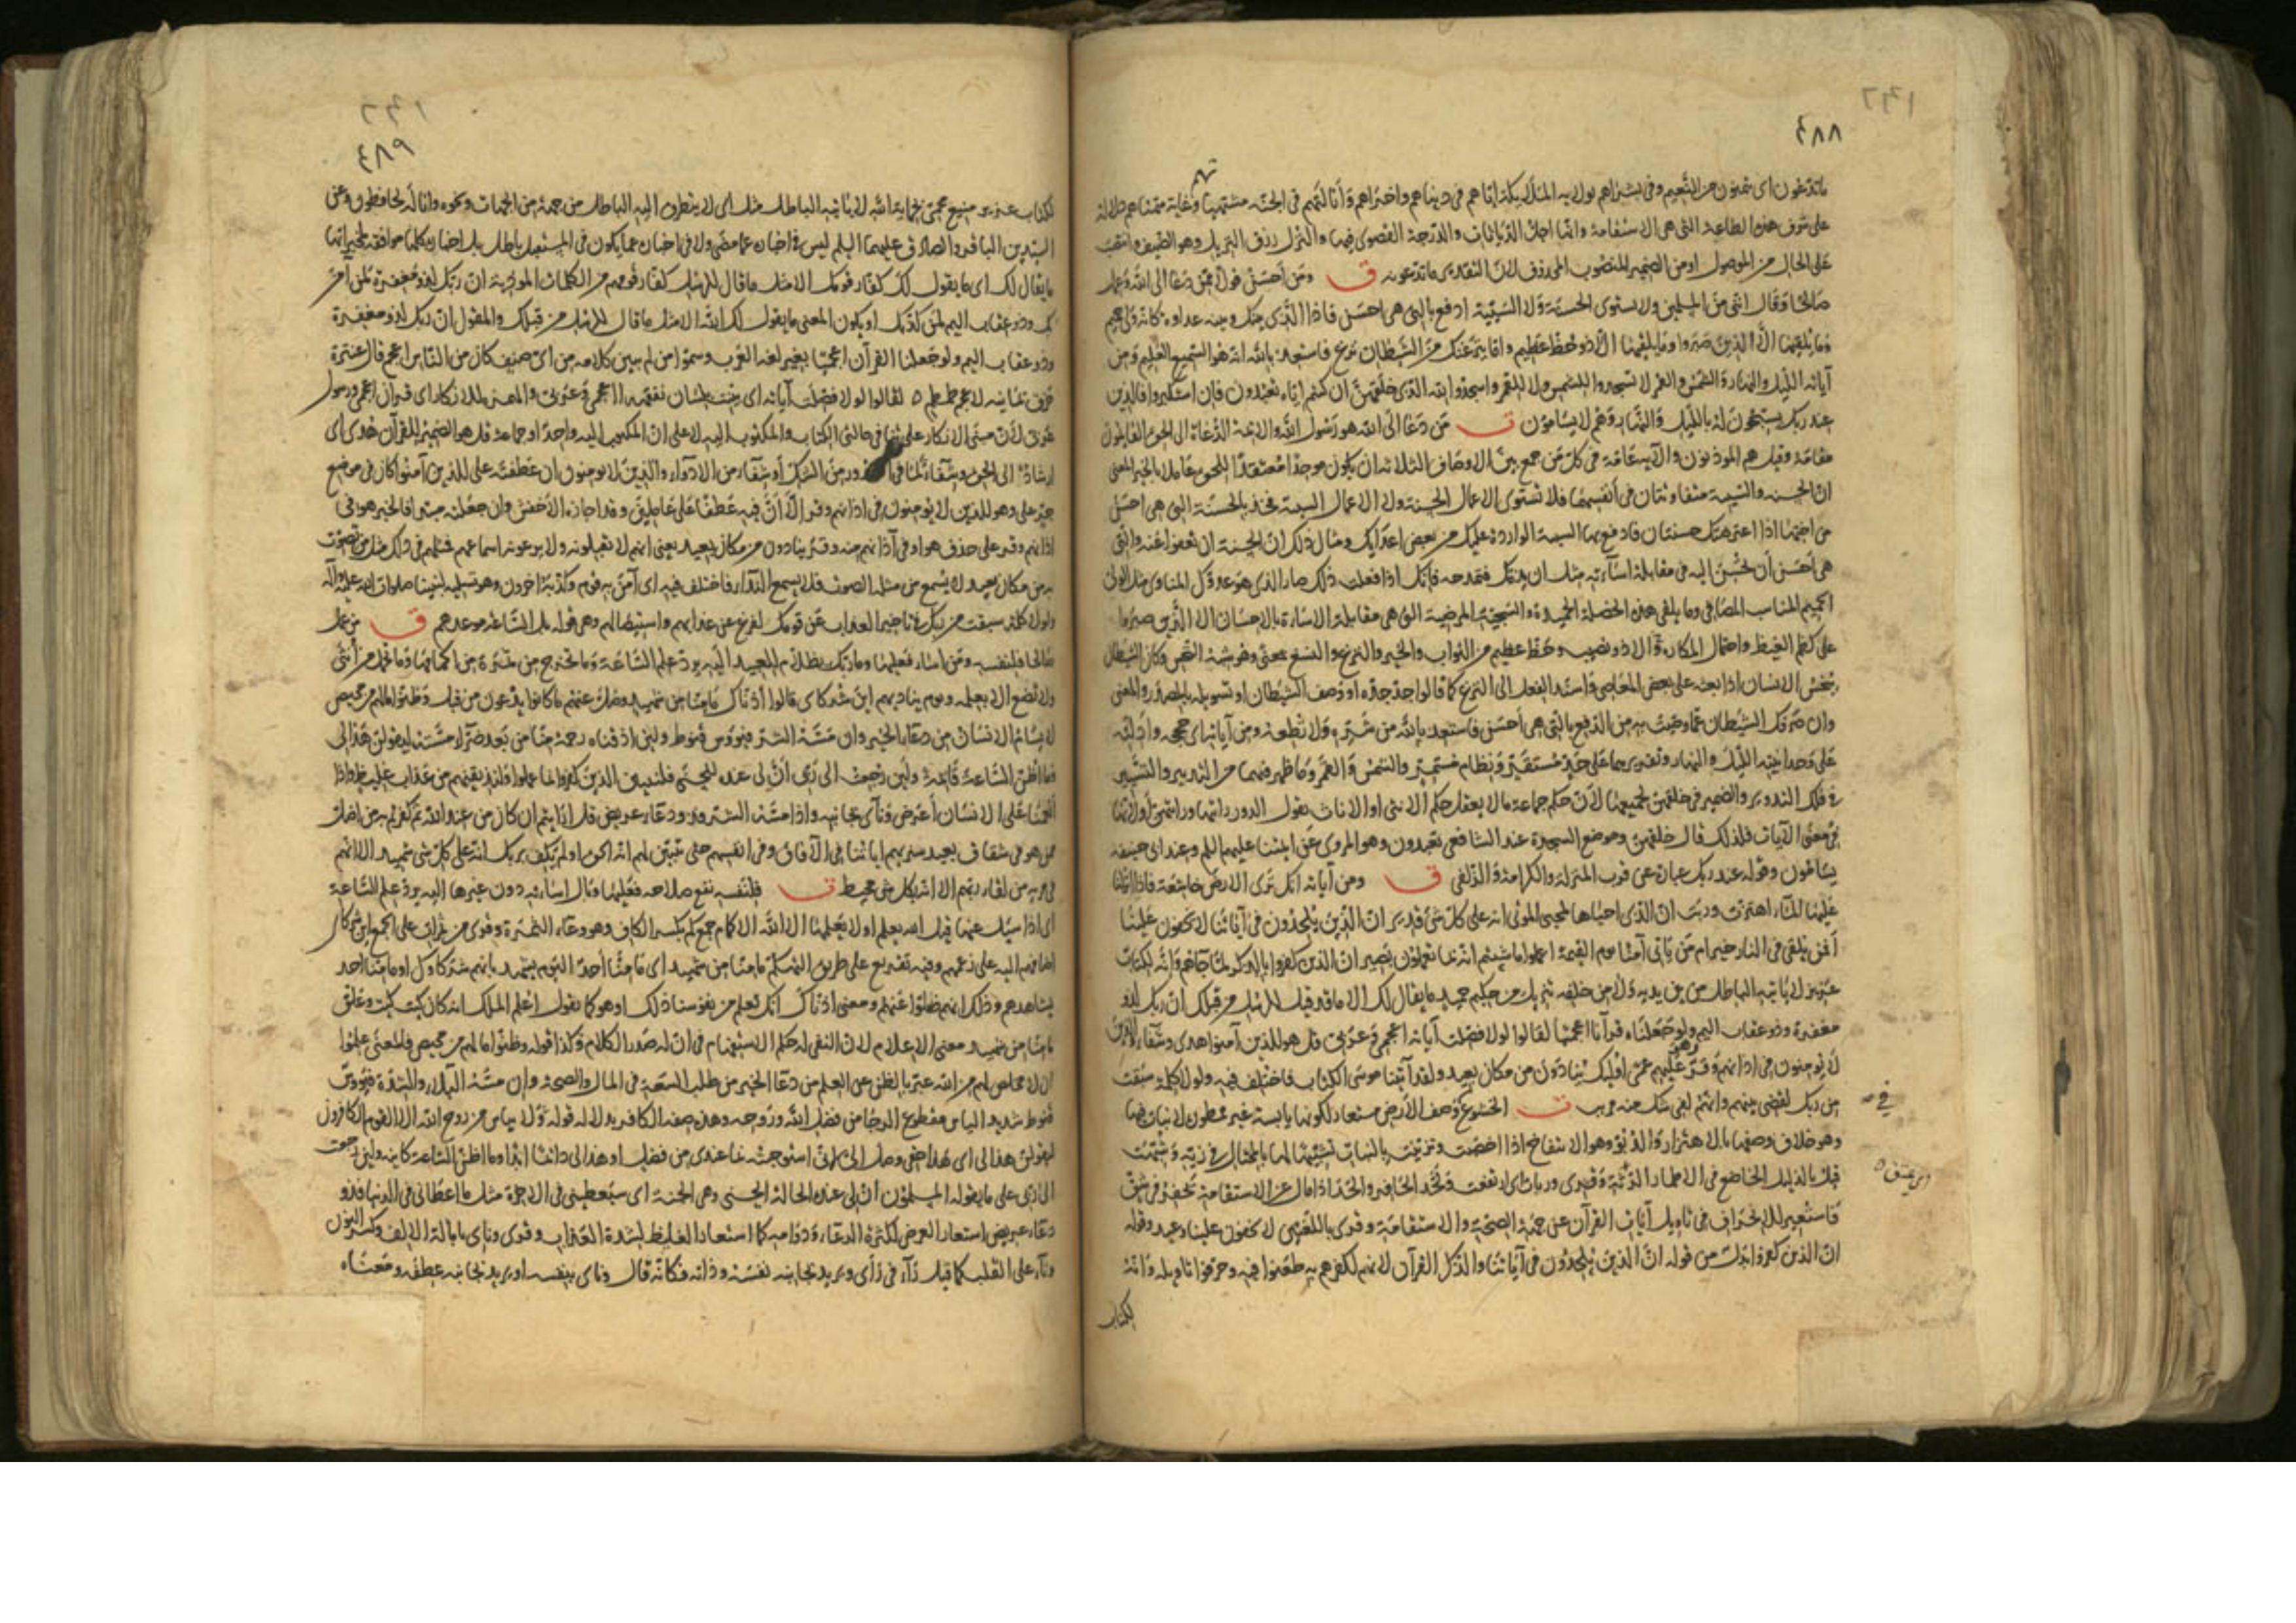 ٤٨٨
على شرف هذه الطاعة التي هي الاستقامة وانها اجل الديانات والدرجة القصوى فيها والنزل رزق النزيل وهو الضيف وانتصب
على الحال من الموصول او من الضمير المنصوب المحذوف لان التقدير ما تدعونه ق ومن احسن قولا ممن دعا الى الله وعمل
صالحا وقال انني من المسلمين ولا تستوى الحسنة ولا السيئة ادفع بالتي هي احسن فاذا الذي بينك وبينه عداوة كانه ولي حميم
وما يلقيها الا الذين صبروا وما يلقيها الا ذو حظ عظيم واما ينزغنك من الشيطان نزغ فاستعذ بالله انه هو السميع العليم ومن
آياته الليل والنهار والشمس والقمر لا تسجدوا للشمس ولا للقمر واسجدوا لله الذي خلقهن ان كنتم اياه تعبدون فان استكبروا فالذين
عند ربك يسبحون له بالليل والنهار وهم لا يسامون ق من دعا الى الله هو رسول الله والائمة الدعاة الى الحق القايمون
مقامه وقيل هم الموذنون والآية عامة في كل من جمع بين الاوصاف الثلاثة ان يكون موحدا معتقدا للحق عاملا بالخير المعنى
ان الحسنة والسيئة متفاوتتان في انفسهما فلا تستوى الاعمال الحسنة ولا الاعمال السيئة فخذ بالحسنة التي هي احسن
من اختها اذا اعترضتك حسنتان فادفع بها السيئة الواردة عليك من بعض اعدايك ومثال ذلك ان الحسنة ان تعفوا عنه والتي
هي احسن ان تحسن اليه في مقابلة اساءته مثل ان يذمك فتمدحه فانك اذا فعلت ذلك صار الذي هو عدوك المناوي مثل الولي
الحميم المناسب المصافي وما يلقى هذه الخصلة الحميدة والسجية المرضية التي هي مقابلة الاساءة بالاحسان الا الذين صبروا
على كظم الغيظ واحتمال المكاره والا ذو نصيب وحظ عظيم من الثواب والخير والنزغ والنسغ بمعنى وهو شبه النخس وكان الشيطان
ينخس الانسان اذا بعثه على بعض المعاصي واسند الفعل الى النزغ كما قالوا جد جده او وصف الشيطان او تسويله بالمصدر والمعنى
وان صرفك الشيطان عما وصيت به من الدفع بالتي هي احسن فاستعذ بالله من شره ولا تطعه ومن آياته اى حججه وادلته
على وحدانيته الليل والنهار وتقديرهما على حد مستقر ونظام مستمر والشمس والقمر وما ظهر فيهما من التدبير والتسيير
في فلك التدوير والضمير في خلقهن لجميعها لان حكم جماعة ما لا يعقل حكم الانثى او الاناث يقول الدور رايتها ورايتهن او لانها
في معنى الآيات فلذلك قال خلقهن وموضع السجدة عند الشافعي تعبدون وهو المروى عن ائمتنا عليهم السلم وعند ابي حنيفة
يسامون وقوله عند ربك عبارة عن قرب المنزلة والكرامة والزلفى ق ومن آياته انك ترى الارض خاشعة فاذا انزلنا
عليها الماء اهتزت وربت ان الذي احياها لمحيي الموتى انه على كل شئ قدير ان الذين يلحدون في آياتنا لا يخفون علينا
افمن يلقى في النار خير ام من ياتي آمنا يوم القيمة اعملوا ما شئتم انه بما تعملون بصير ان الذين كفروا بالذكر لما جاءهم وانه لكتاب
عزيز لا ياتيه الباطل من بين يديه ولا من خلفه تنزيل من حكيم حميد ما يقال لك الا ما قد قيل للرسل من قبلك ان ربك لذو
مغفرة وذو عقاب اليم ولو جعلناه قرآنا اعجميا لقالوا لولا فصلت آياته اعجمي وعربي قل هو للذين آمنوا هدى وشفاء والذين
لا يومنون في اذانهم وقر وهو عليهم عمى اوليك ينادون من مكان بعيد ولقد آتينا موسى الكتاب فاختلف فيه ولولا كلمة سبقت
من ربك لقضى بينهم وانهم لفي شك منه مريب ق الخشوع وصف الارض مستعار لكونها يابسة غير ممطورة لا نبات فيها
وهو خلاف وصفها بالاهتزاز والربو وهو الانتفاخ اذا اخصبت وتزينت بالنبات تشبيها لها بالمختال في زيه وشبهت
قبل بالذليل الخاضع في الاطمار الرثة وقرى وربات اى ارتفعت ولحد الحافر والحد اذا مال عن الاستقامة فحفر في شق
فاستعير للانحراف في تاويل آيات القرآن عن جهة الصحة والاستقامة وقرى باللغتين لا يخفون علينا وعيد وقوله
ان الذين كفروا بدل من قوله ان الذين يلحدون في آياتنا والذكر القرآن لانهم لكفرهم به طعنوا فيه وحرفوا تاويله وانه
لكتاب
٤٨٩
لكتاب عزيز منيع محمي بحماية الله لا ياتيه الباطل مثل اى لا يتطرق اليه الباطل من جهة من الجهات ونحوه وانا له لحافظون وعن
السيدين الباقر والصادق عليهما السلم ليس في اخباره عما مضى ولا في اخباره عما يكون في المستقبل باطل بل اخباره كلها موافقة لمخبراتها
ما يقال لك اى ما يقول لك كفار قومك الا مثل ما قال للرسل كفار قومهم من الكلمات الموذية ان ربك لذو مغفرة لمن آمن
بك وذو عقاب اليم لمن كذبك او يكون المعنى ما يقول لك الله الا مثل ما قال للرسل من قبلك والمقول ان ربك لذو مغفرة
وذو عقاب اليم ولو جعلنا القرآن اعجميا بغير لغة العرب وسموا من لم يبين كلامه من اى صنف كان من الناس اعجم قال عنترة
لقالوا لولا فصلت آياته اى بينت بلسان نفقهه ااعجمي وعربي والهمزة للانكار اى قرآن اعجمي ورسول
عربي لان مبنى الانكار على تنافى حالتي الكتاب والمكتوب اليه لا على ان المكتوب اليه واحد او جماعة قل هو الضمير للقرآن هدى اى
ارشاد الى الحق وشفاء لما في الصدور من الشك او شفاء من الادواء والذين لا يومنون ان عطفته على للذين آمنوا كان في موضع
جر على وهو للذين لا يومنون في اذانهم وقر الا ان فيه عطفا على عاملين وقد اجازه الاخفش وان جعلته مبتدا فالخبر هو في
اذانهم وقر على حذف هو او في آذانهم منه وقر ينادون من مكان بعيد يعني انهم لا يقبلونه ولا يرعونه اسماعهم فمثلهم في ذلك مثل من يصوت
به من مكان بعيد لا يسمع من مثله الصوت فلا يسمع النداء فاختلف فيه اى آمن به قوم وكذب به اخرون وهو تسلية لنبينا صلوات الله عليه وآله
ولولا كلمة سبقت من ربك في تاخير العذاب عن قومك لفرغ من عذابهم واستيصالهم وهي قوله بل الساعة موعدهم ق من عمل
صالحا فلنفسه ومن اساء فعليها وما ربك بظلام للعبيد اليه يرد علم الساعة وما تخرج من ثمرة من اكمامها وما تحمل من انثى
ولا تضع الا بعلمه ويوم يناديهم اين شركاى قالوا آذناك ما منا من شهيد وضل عنهم ما كانوا يدعون من قبل وظنوا ما لهم من محيص
لا يسام الانسان من دعاء الخير وان مسه الشر فيوس قنوط ولين اذقناه رحمة منا من بعد ضراء مسته ليقولن هذا لي
وما اظن الساعة قايمة ولين رجعت الى ربي ان لي عنده للحسنى فلننبين الذين كفروا بما عملوا ولنذيقنهم من عذاب غليظ واذا
انعمنا على الانسان اعرض وناى بجانبه واذا مسه الشر فذو دعاء عريض قل ارايتم ان كان من عند الله ثم كفرتم به من اضل
ممن هو في شقاق بعيد سنريهم اياتنا في الآفاق وفي انفسهم حتى يتبين لهم انه الحق اولم يكف بربك انه على كل شئ شهيد الا انهم
في مرية من لقاء ربهم الا انه بكل شئ محيط ق فلنفسه نفع صلاحه فعليها وبال اساءته دون غيرها اليه يرد علم الساعة
اى اذا سئل عنها قيل الله يعلم او لا يعلمها الا الله الاكمام جمع كم بكسر الكاف وهو وعاء الثمرة وقرى من ثمرات على الجمع اين شركاى
اضافهم اليه على زعمهم وفيه تقريع على طريق التهكم ما منا من شهيد اى ما منا احد اليوم يشهد بانهم شركاوك او ما منا احد
يشاهدهم وذلك انهم ضلوا عنهم ومعنى آذناك انك تعلم من نفوسنا ذلك او هو كما يقول اعلم الملك انه كان كيت كيت وعلق
ما منا من شهيد معنى الاعلام لان النفي له حكم الاستفهام في ان له صدر الكلام وكذا قوله وظنوا ما لهم من محيص فالمعنى علموا
ان لا مخلص لهم من الله عبر بالظن عن العلم من دعاء الخير من طلب السعة في المال والصحة وان مسه البلاء والشدة فيووس
قنوط شديد الياس مقطوع الرجا من فضل الله وروحه وهذه صفة الكافر بدلالة قوله ولا يياس من روح الله الا القوم الكافرون
ليقولن هذا لي اى هذا حقي وصل الى لاني استوجبته بما عندى من فضل او هذا لي دائما ابدا وما اظن الساعة كاينة ولين رجعت
الى ربي على ما يقوله المسلمون ان لي عنده الحالة الحسنى وهي الجنة اى سيعطيني في الاخرة مثل ما اعطاني في الدنيا فذو
دعاء عريض استعار العرض لكثرة الدعاء ودوامه كما استعار الغليظ لشدة العذاب وقرى وناى بامالة الالف وكسر النون
وناء على القلب كما قيل راء في راى ويريد بجانبه نفسه وذاته فكانه قال وناى بنفسه او يريد بجانبه عطفه ومعناه